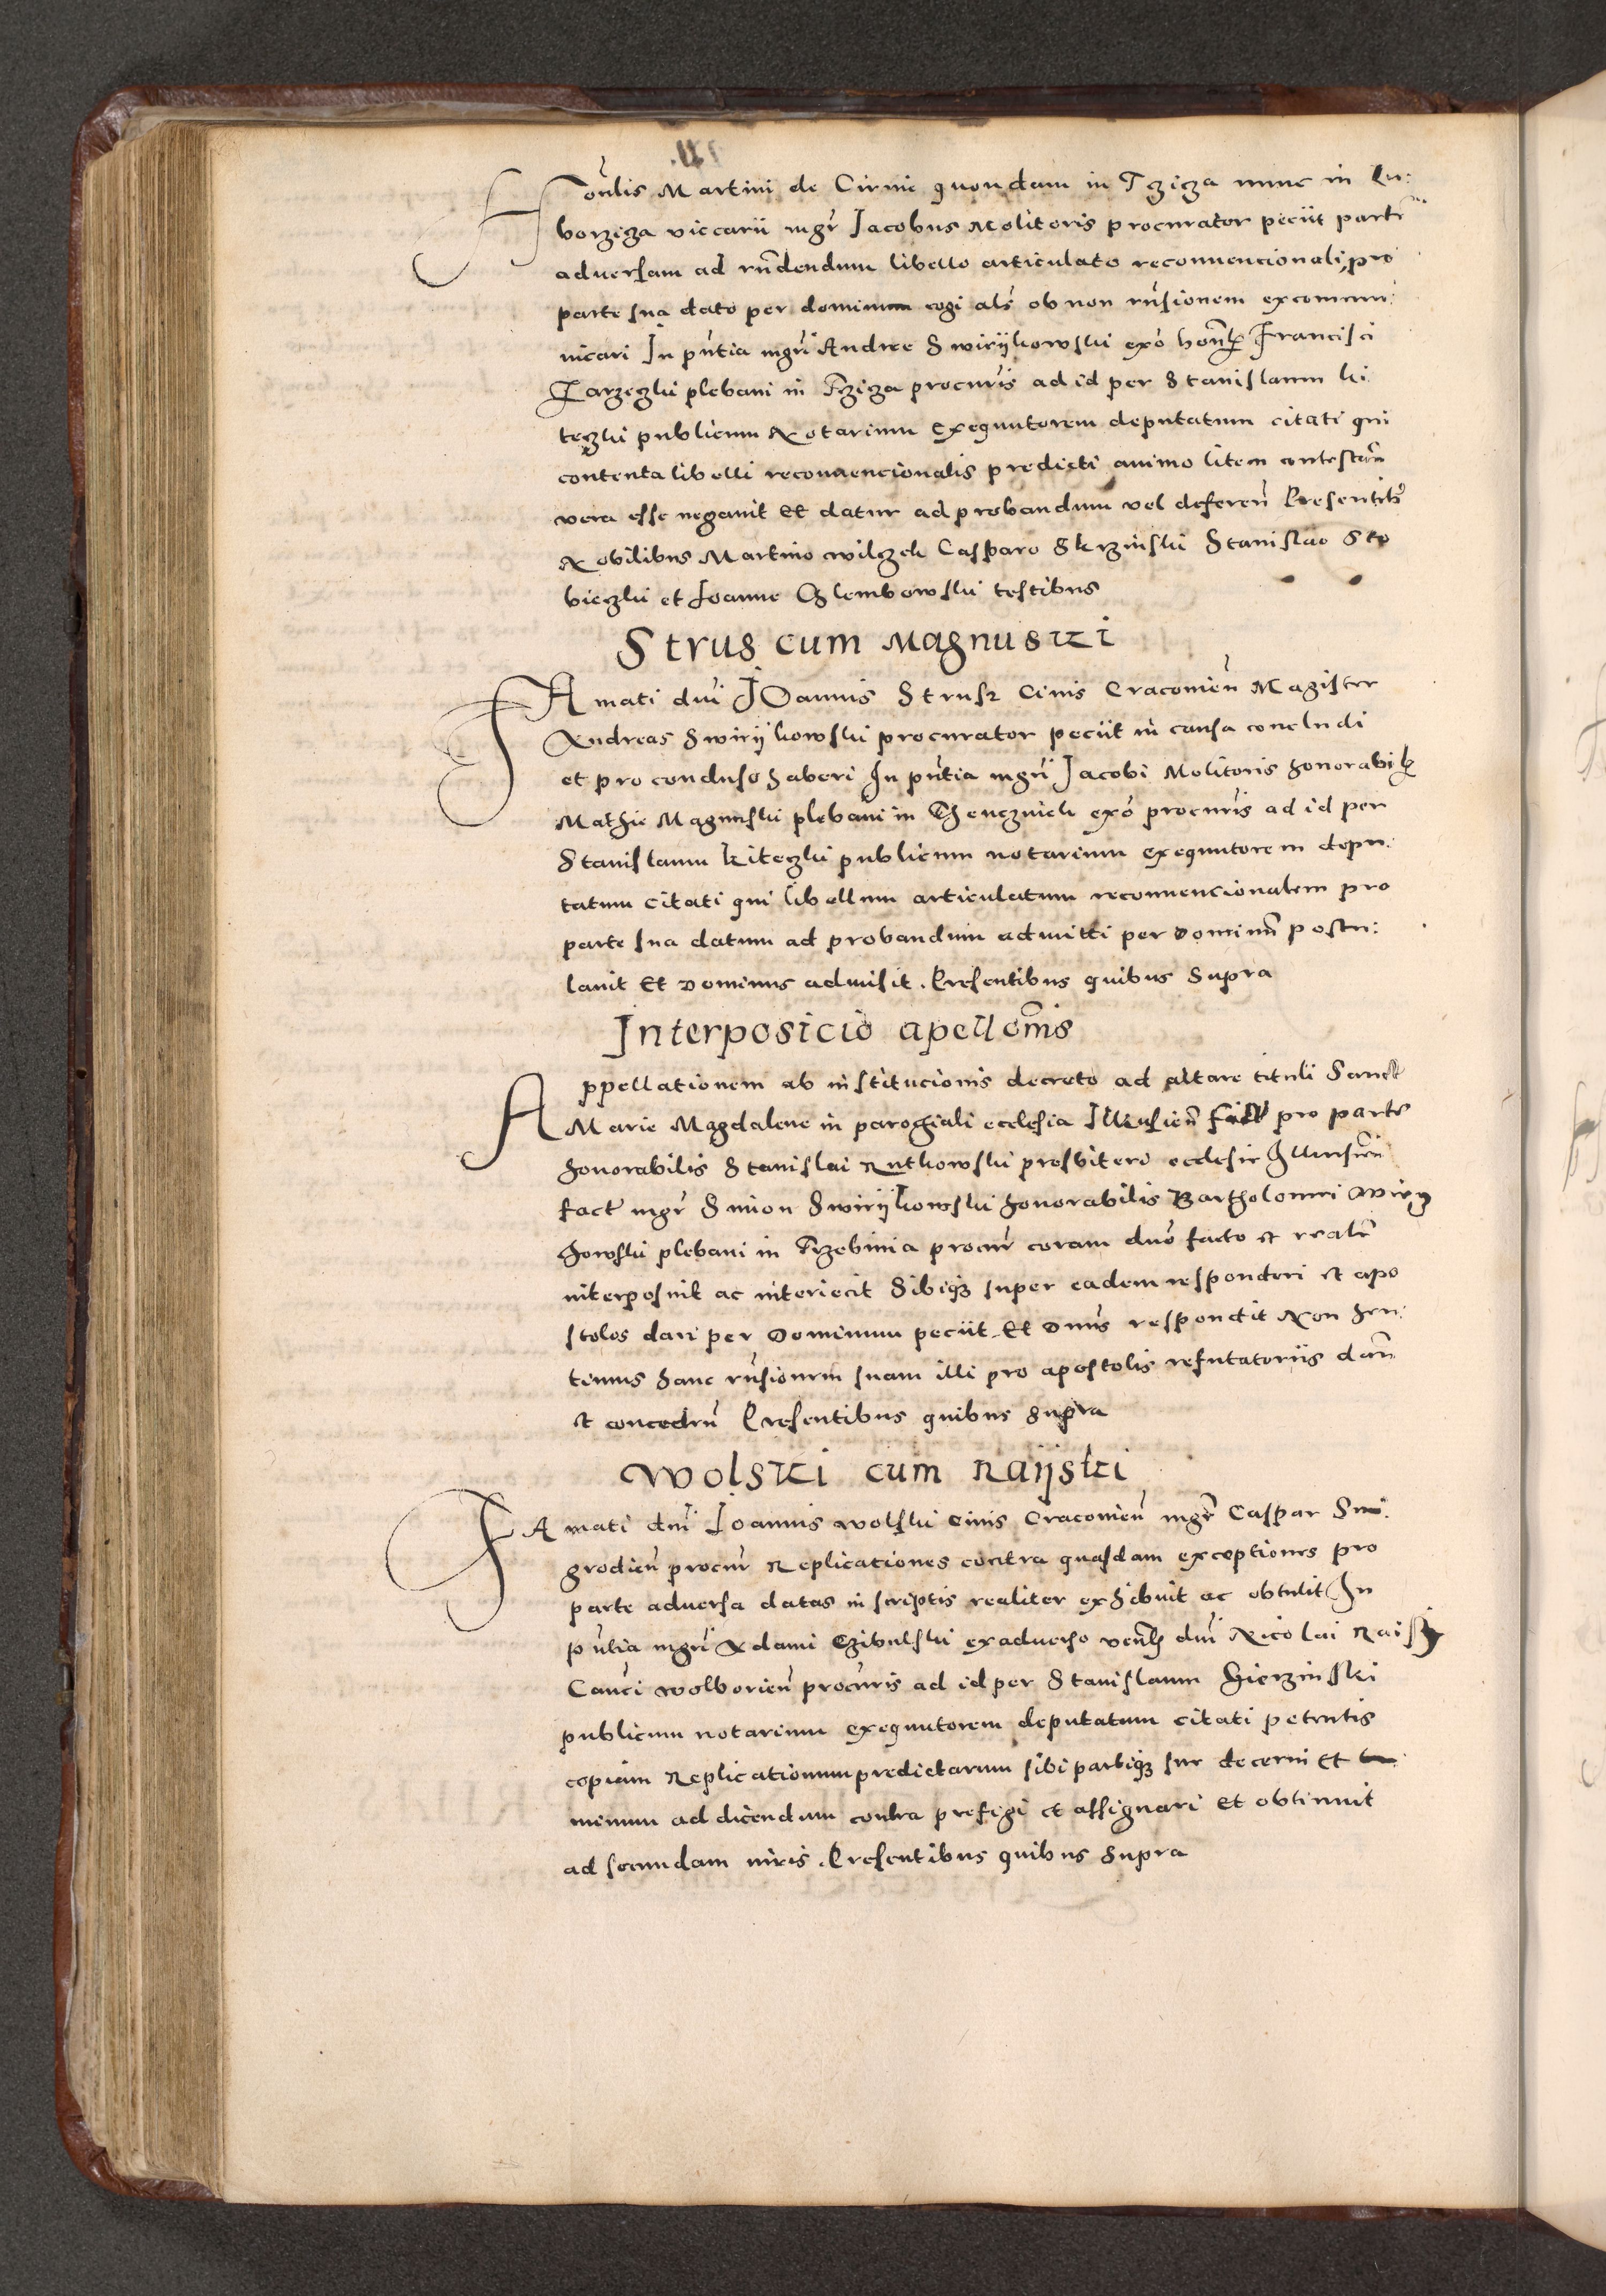 Honlis Martini de Cirnie quondam in Tczicza nunc in Lu:
borzicza viccarii mgr Jacobus Molitoris procurator peciit parte
adversam ad rn̄dendum libello articulato reconvencionali pro
parte sua dato per dominum cogi als ob non rn̄sionem excommu:
nicari In pn̄tia mgri Andree Swirijkowski exo honlis Francisci
Jarzeczki plebani in Tcziza procuris ad id per Stanislaum Ki
teczki publicum Notarium exequutorem deputatum citati qui
contenta libelli reconvencionalis predicti animo litem contestan
vera esse negavit Et datur ad probandum vel deferen Presentibus
Nobilibus Martino wilczek Casparo Skrzinski Stanislao Sko
bieczki et Joanne Glembowski testibus
Strus cum Magnuski
FAmati dni JOannis Strusz Civis Cracovien Magister
Andreas Swirijkowski procurator peciit in causa concludi
et pro concluso haberi In pn̄tia mgri Jacobi Molitoris honorabilis
Mathie Magnuski plebani in Thenczniek exo procuris ad id per
Stanislaum Kiteczki publicum notarium exequutorem depu:
tatum citati qui libellum articulatum reconvencionalem pro
parte sua datum ad probandum admitti per Dominum postu:
lavit Et Dominus admisit. Presentibus quibus Supra
Interposicio apellonis
Appellationem ab institucionis decreto ad altare tituli Sancte
Marie Magdalene in parochiali ecclesia Illkusien pro parte
honorabilis Stanislai Rutkowski presbitero ecclesie Illkusien
fact mgr Simon Swirijkowski honorabilis Bartholomei
plebani in Trzebinia procur coram dno facto et realr
interposuit ac interiecit Sibiqz super eadem responderi et apo
stolos dari per Dominum peciit Et Dnus respondit Non
hanc rn̄sionem suam illi pro apostolis refutatoriis dan
et conceden Presentibus quibus supra
Wolski cum Raijski
FAmati dni Joannis wolski Civis Cracovien mgr Caspar
grodien procur Replicationes contra quasdam exceptiones pro
parte adversa datas in scriptis realiter exhibuit ac obtulit In
pn̄tia mgri Adami Czibulski exadverso venlis dni Nicolai
Canci wolborien procuris ad id per Stanislaum
publicum notarium exequutorem deputatum citati petentis
copiam Replicationum predictarum sibi partiqz sue decerni et
minum ad dicendum contra prefigi et assignari Et obtinuit
ad secundam iuris. Presentibus quibus Supra